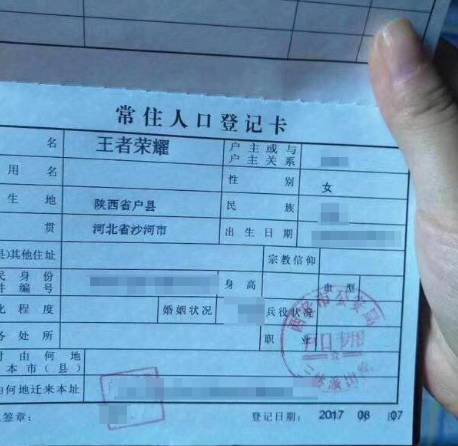 常住人口登记卡
名 王者荣耀 户主或与户主关系
用名 性别 女
生地 陕西省户县 民族
贯 河北省沙河市 出生日期
县)其他住址 宗教信仰
民身份件编号 身高 血型
化程度 婚姻状况 兵役状况
务处所 职业
时由何地
本市(县)
由何地迁来本址
签章: 登记日期: 2017 08 07